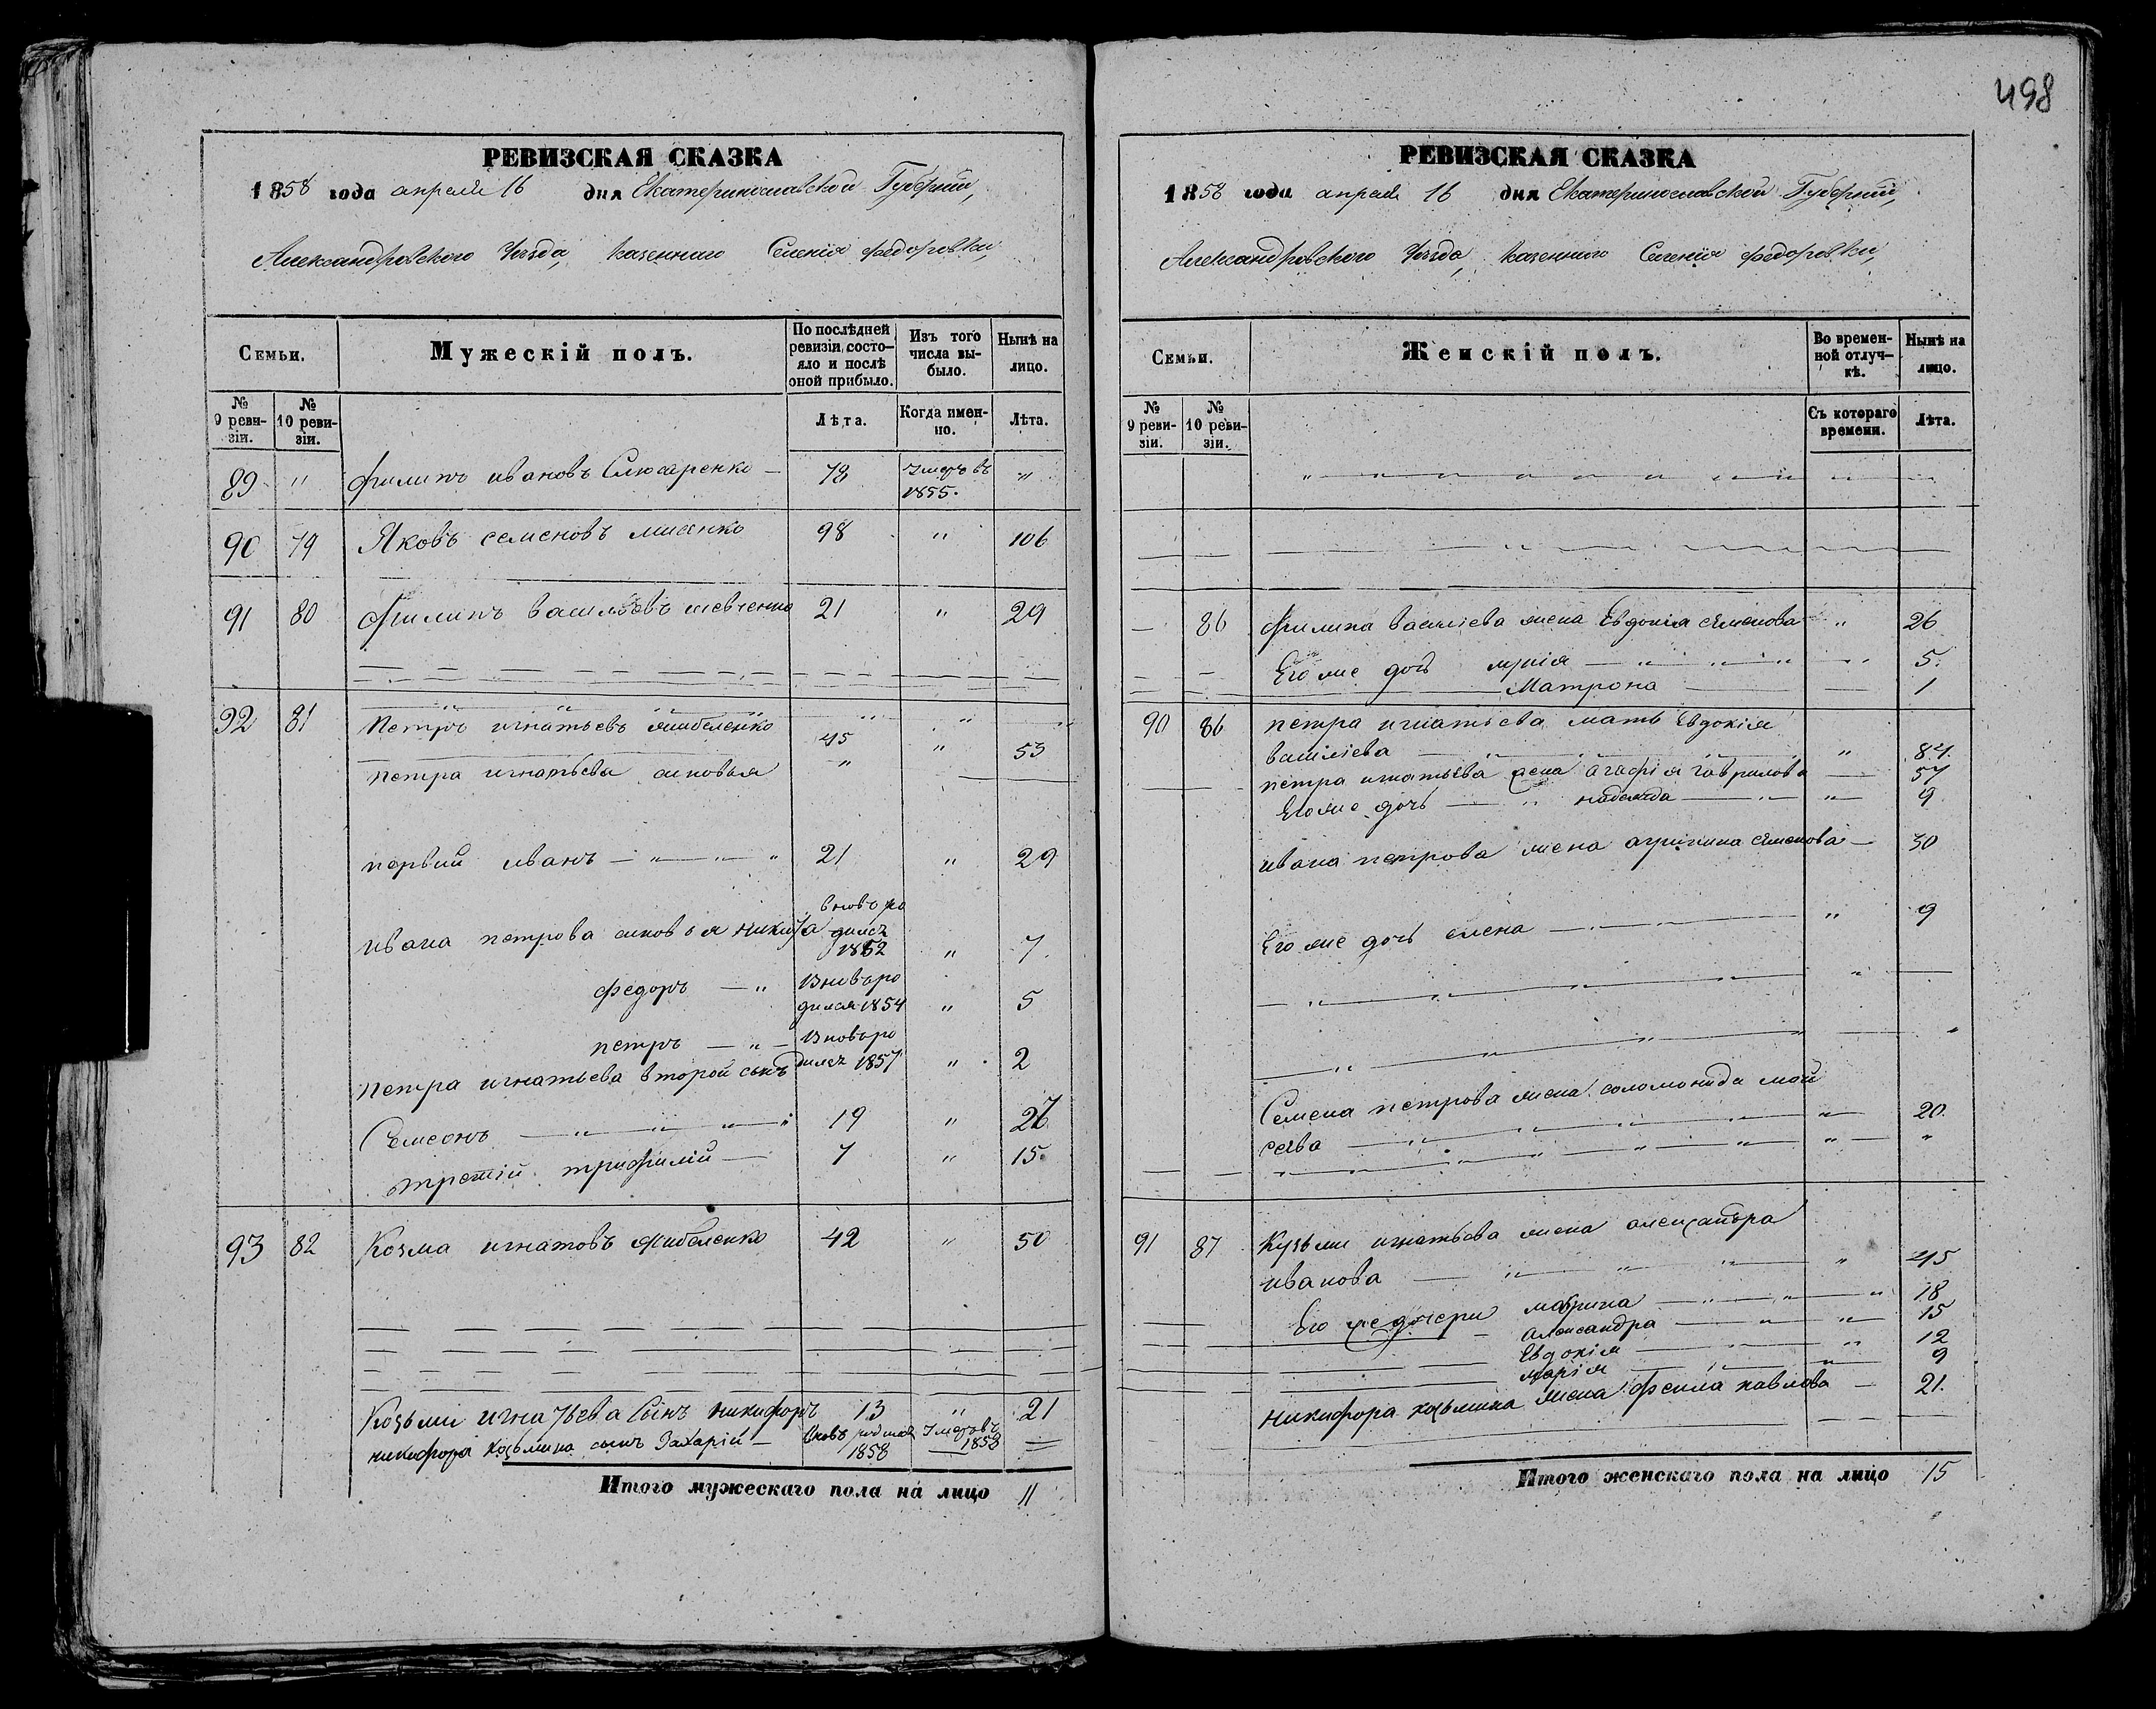 498
РЕВИЗСКАЯ СКАЗКА
1858 года апреля 16 дня Екатеринославской Губерніи,
Александровского Уезда, казенного Селенія Федоровки,
Семьи.
Мужескій полъ.
По послѣдней ревизіи состо-
яло и послѣ
оной прибыло.
Изъ того
числа вы-
было.
Нынѣ на
лицо.
№
9 реви-
зіи.
№
10 реви-
зіи.
Лѣта.
Когда имен-
но.
Лѣта.
89 " Филипъ ивановъ Слюсаренко — 78 умеръ въ "
1855.
90 79 Яковъ семеновъ 98 " 106
91 80 Филипъ васильевъ шевченко 21 " 29
92 81 Петръ игнатьевъ 45 " 53
петра игнатьева сыновья "
первый иванъ — " — " — " 21 " 29
вновь ро
ивана петрова сыновья никита дилсz
1852 " 7.
федоръ — " Вновь ро
дилса 1854 " 5
петръ — " — Вновь ро
дилсz 1857 " 2
петра игнатьева второй сынъ
Семеонъ — " — " — " 19 " 27
третій трифилій — 7 " 15.
93 82 Козма игнатовъ 42 " 50
Козьми игнатьева Сынъ никифоръ 13 " 21
никифора козьмина сынъ Захарій — вновь родился умеръ въ
1858 1858
Итого мужескаго пола на лицо 11
РЕВИЗСКАЯ СКАЗКА
1858 года апреля 16 дня Екатеринославской Губерніи,
Александровского Уезда, казенного Селенія Федоровки,
Семьи.
Женскій полъ.
Во времен-
ной отлуч-
кѣ.
Нынѣ на
лицо.
№
9 реви-
зіи.
№
10 реви-
зіи.
Съ котораго
времени.
Лѣта.
— 86 Филипа василіева жена Евдокія семенова " 26
Его же дочь — " 5.
Матрона — 1
90 86 петра игнатьева мать Евдокія
василіева — " 87.
петра игнатьева жена агафія гаврилова — 57
Его же дочь — " надежда — " 9
ивана петрова жена агрипина семенова — 30
Его же дочь елена — " 9
Семена петрова жена соломонида мой
сеева — " 20.
91 87 Кузьми игнатьева жена александра
иванова — " 45
Его же дочери марина — " 18
александра — " 15
Евдокія — " 12
марія — " 9
никифора козьмина жена Фекла павлова — 21.
Итого женскаго пола на лицо 15